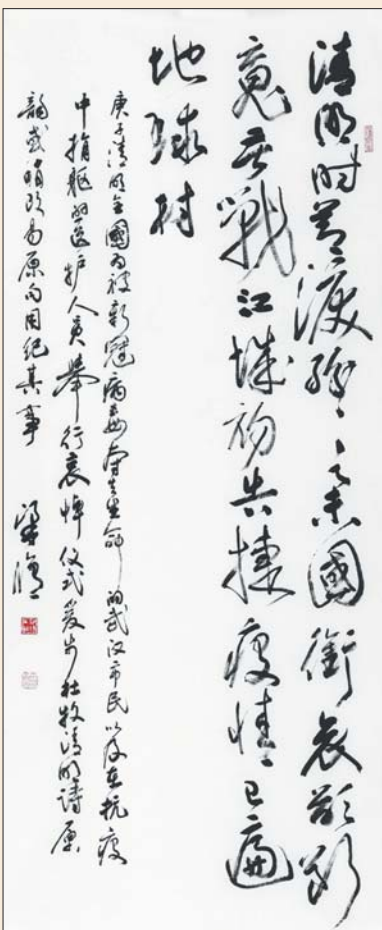 清明时节淚纷纷举國銜哀欲斷
魂苦戰江城初告捷疫情已遍
地球村
庚子清明全國为被新冠病毒夺去生命的武汉市民以及在抗疫
中捐躯的医护人员舉行哀悼仪式爰步杜牧清明詩原
韻或稍改易原句用纪其事